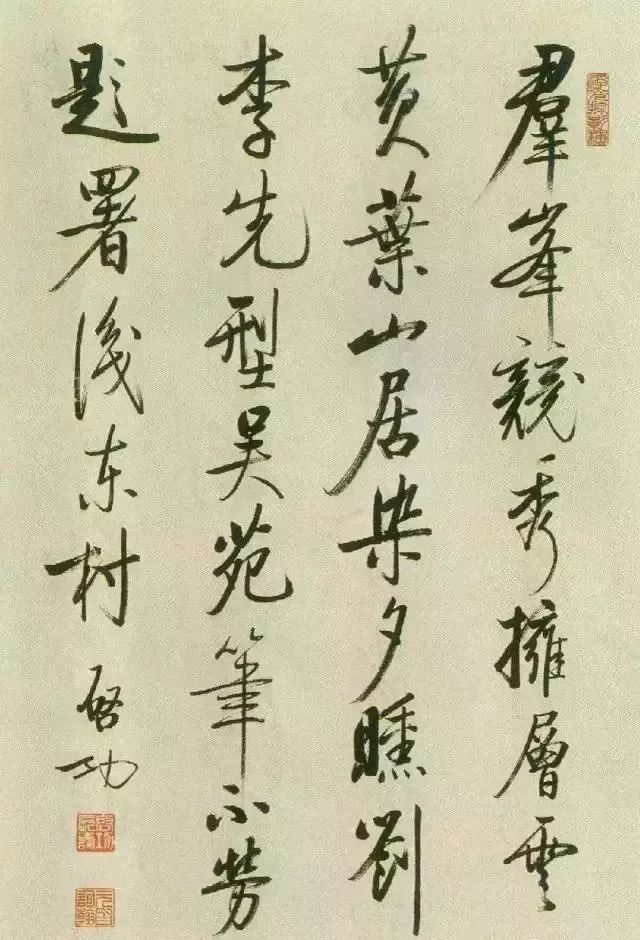 羣峯競秀擁層雲
黄葉山居染夕曛劉
李先型吴苑筆不勞
題署後东村
啓功